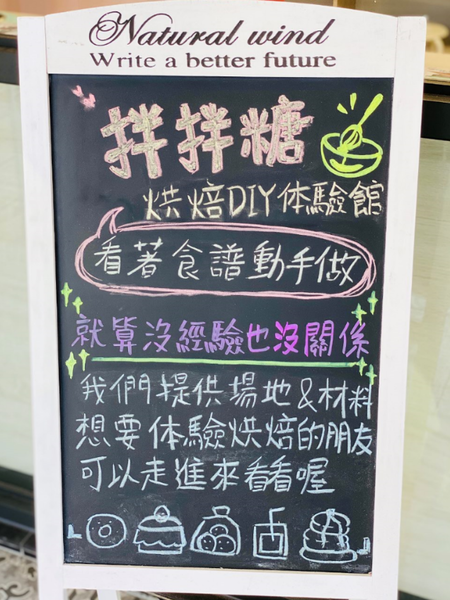 Natural wind
Write a better future
拌拌糖
烘焙DIY体驗館
看著食譜動手做
就算沒經驗也沒關係
我們提供場地&材料
想要体驗烘焙的朋友
可以走進來看看喔